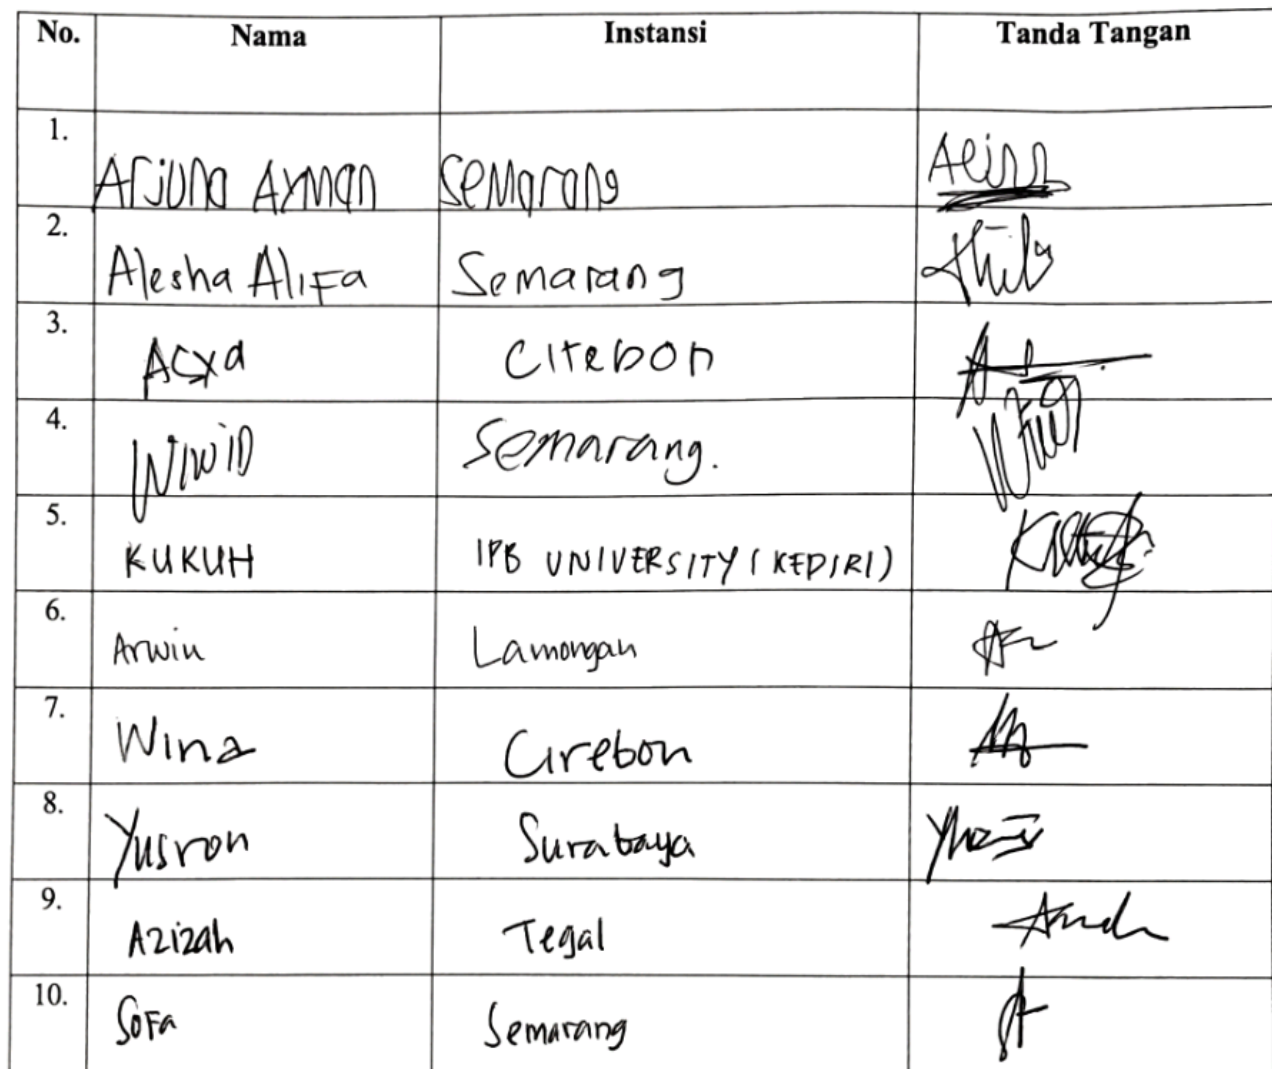 No. Nama Instansi Tanda Tangan
1. Arjuna Ayman Semarang
2. Alesha Alifa Semarang
3. Acxa Cirebon
4. Wiwid Semarang.
5. KUKUH IPB UNIVERSITY (KEDIRI)
6. Arwin Lamongan
7. Wina Cirebon
8. Yusron Surabaya
9. Azizah Tegal
10. Sofa Semarang